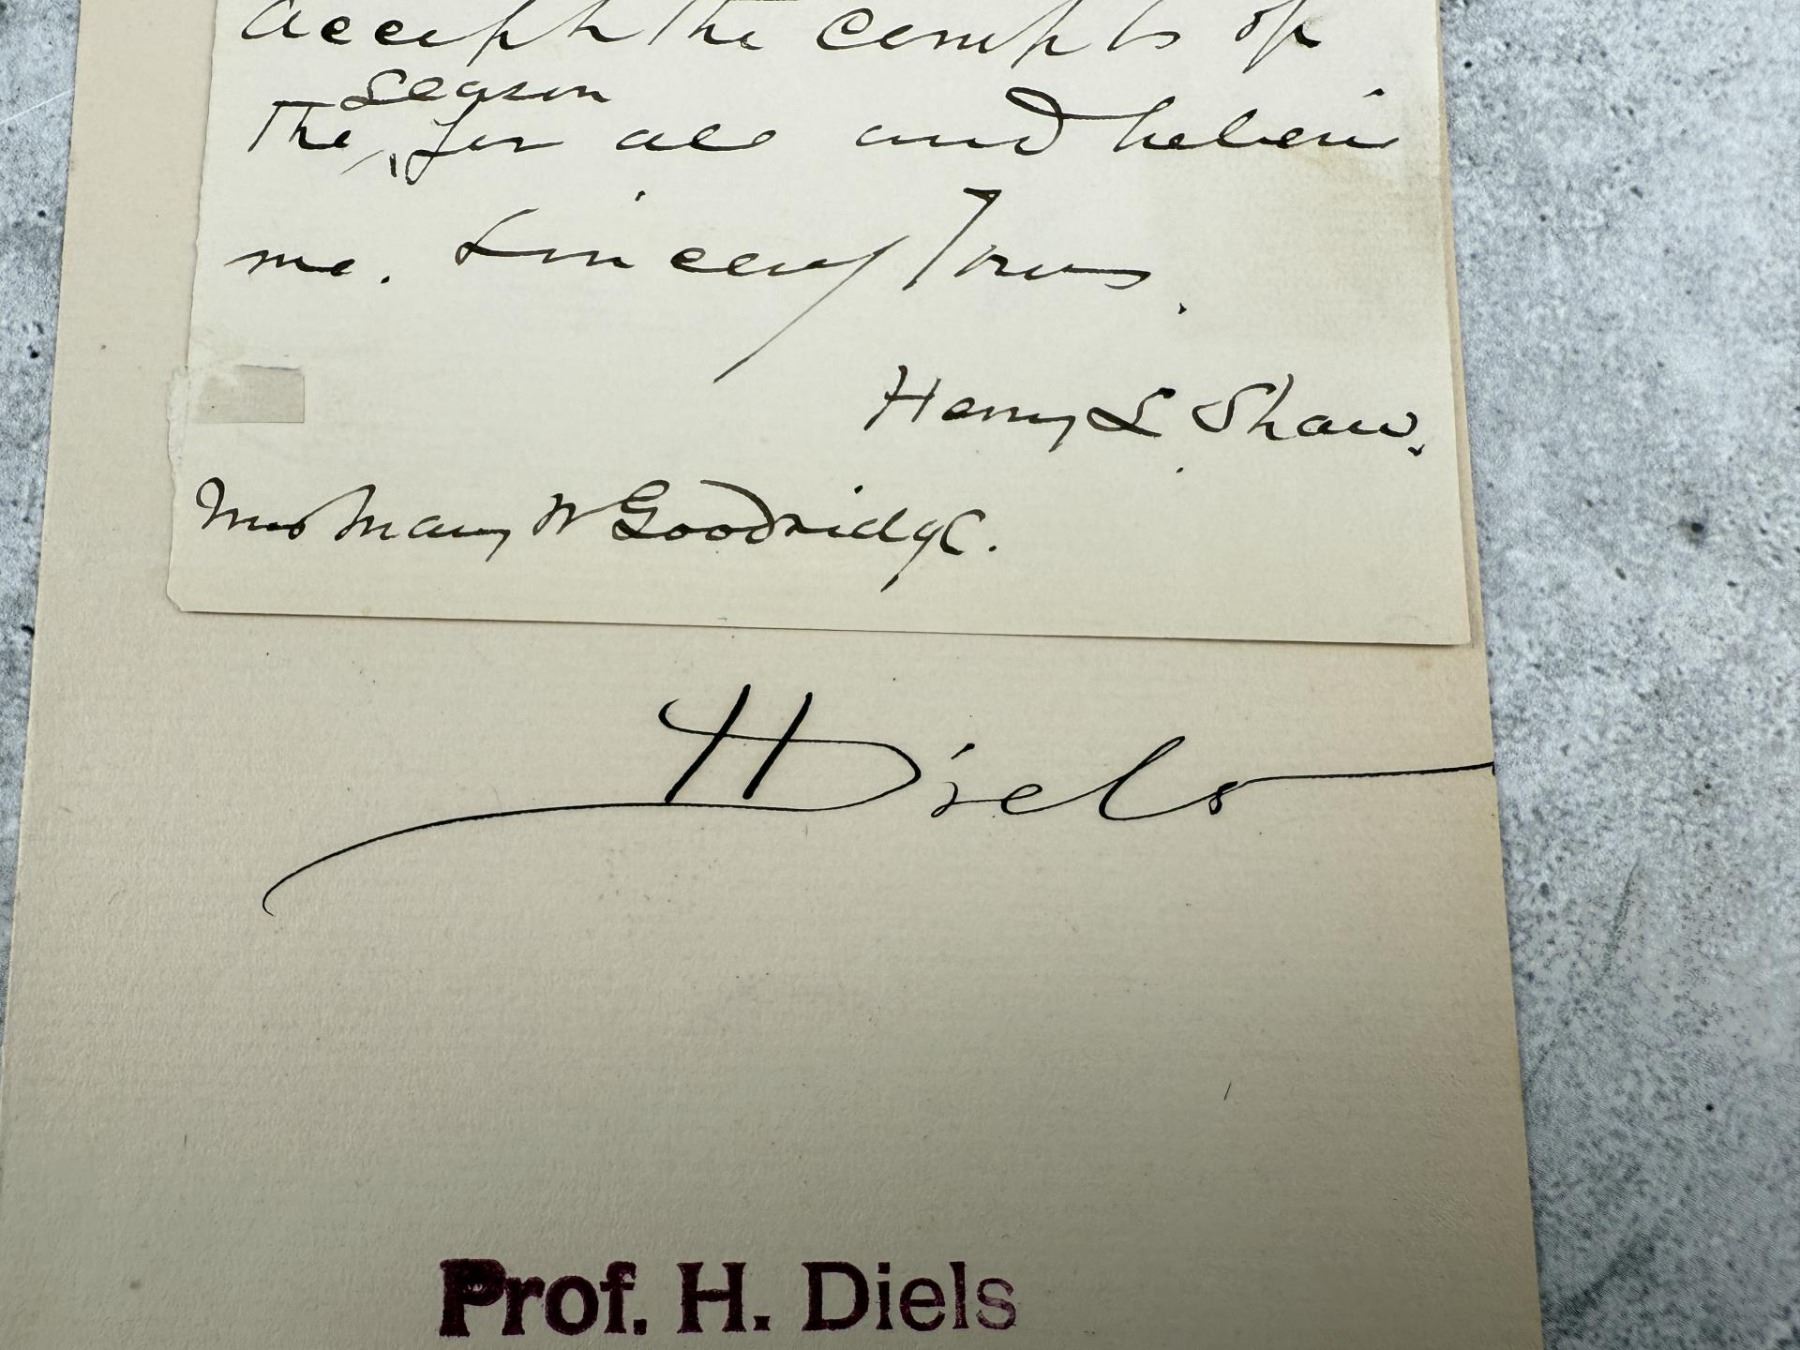 accept the compts of
season
the for all and believe
me. Sincerely Yours.
Henry L Shaw.
Mrs Mary W Goodridge.
H Diels
Prof. H. Diels